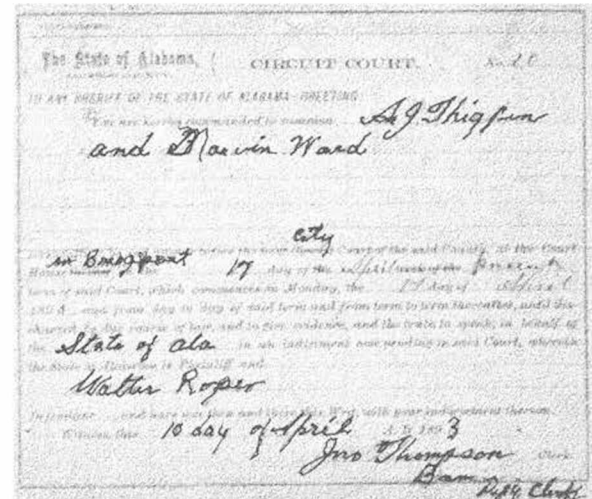 The State of Alabama, CIRCUIT COURT. No. 20
TO ANY SHERIFF OF THE STATE OF ALABAMA—GREETING:
You are hereby commanded to summon A. J. Thigpen
and Marvin Ward
city
before the Court of the said County, at the Court
17 day of the April
term of said Court, which commences on Monday, the day of April
and from day to day of said term and from term to term thereafter, until discharged
by due course of law, and to give evidence, and the truth to speak, in behalf of
the State of Ala in an indictment now pending in said Court, wherein
the State of Alabama is Plaintiff and
Walter Roper
Defendant and have you then and there this Writ, with your indorsement thereon.
Witness, this 10 day of April A. D. 1893
Jno Thompson Clerk
Depty Clerk